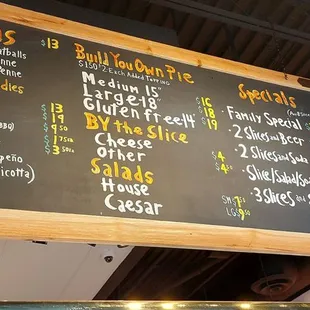 $13
atballs
enne
enne
dies
13
19
9 50
1 75ca
3 50
BBQ)
apeño
icotta)
Build You Own Pie
Each Added Topping
Medium 15" 16
Large 18" 18
Gluten free 14" 19
BY the Slice
Cheese 4
Other 4
Salads
House
Caesar
SM $
LG $9
Specials
Family Special
2 Slices and Beer
2 Slices and Soda
Slice/Salad/Soda
3 Slices and